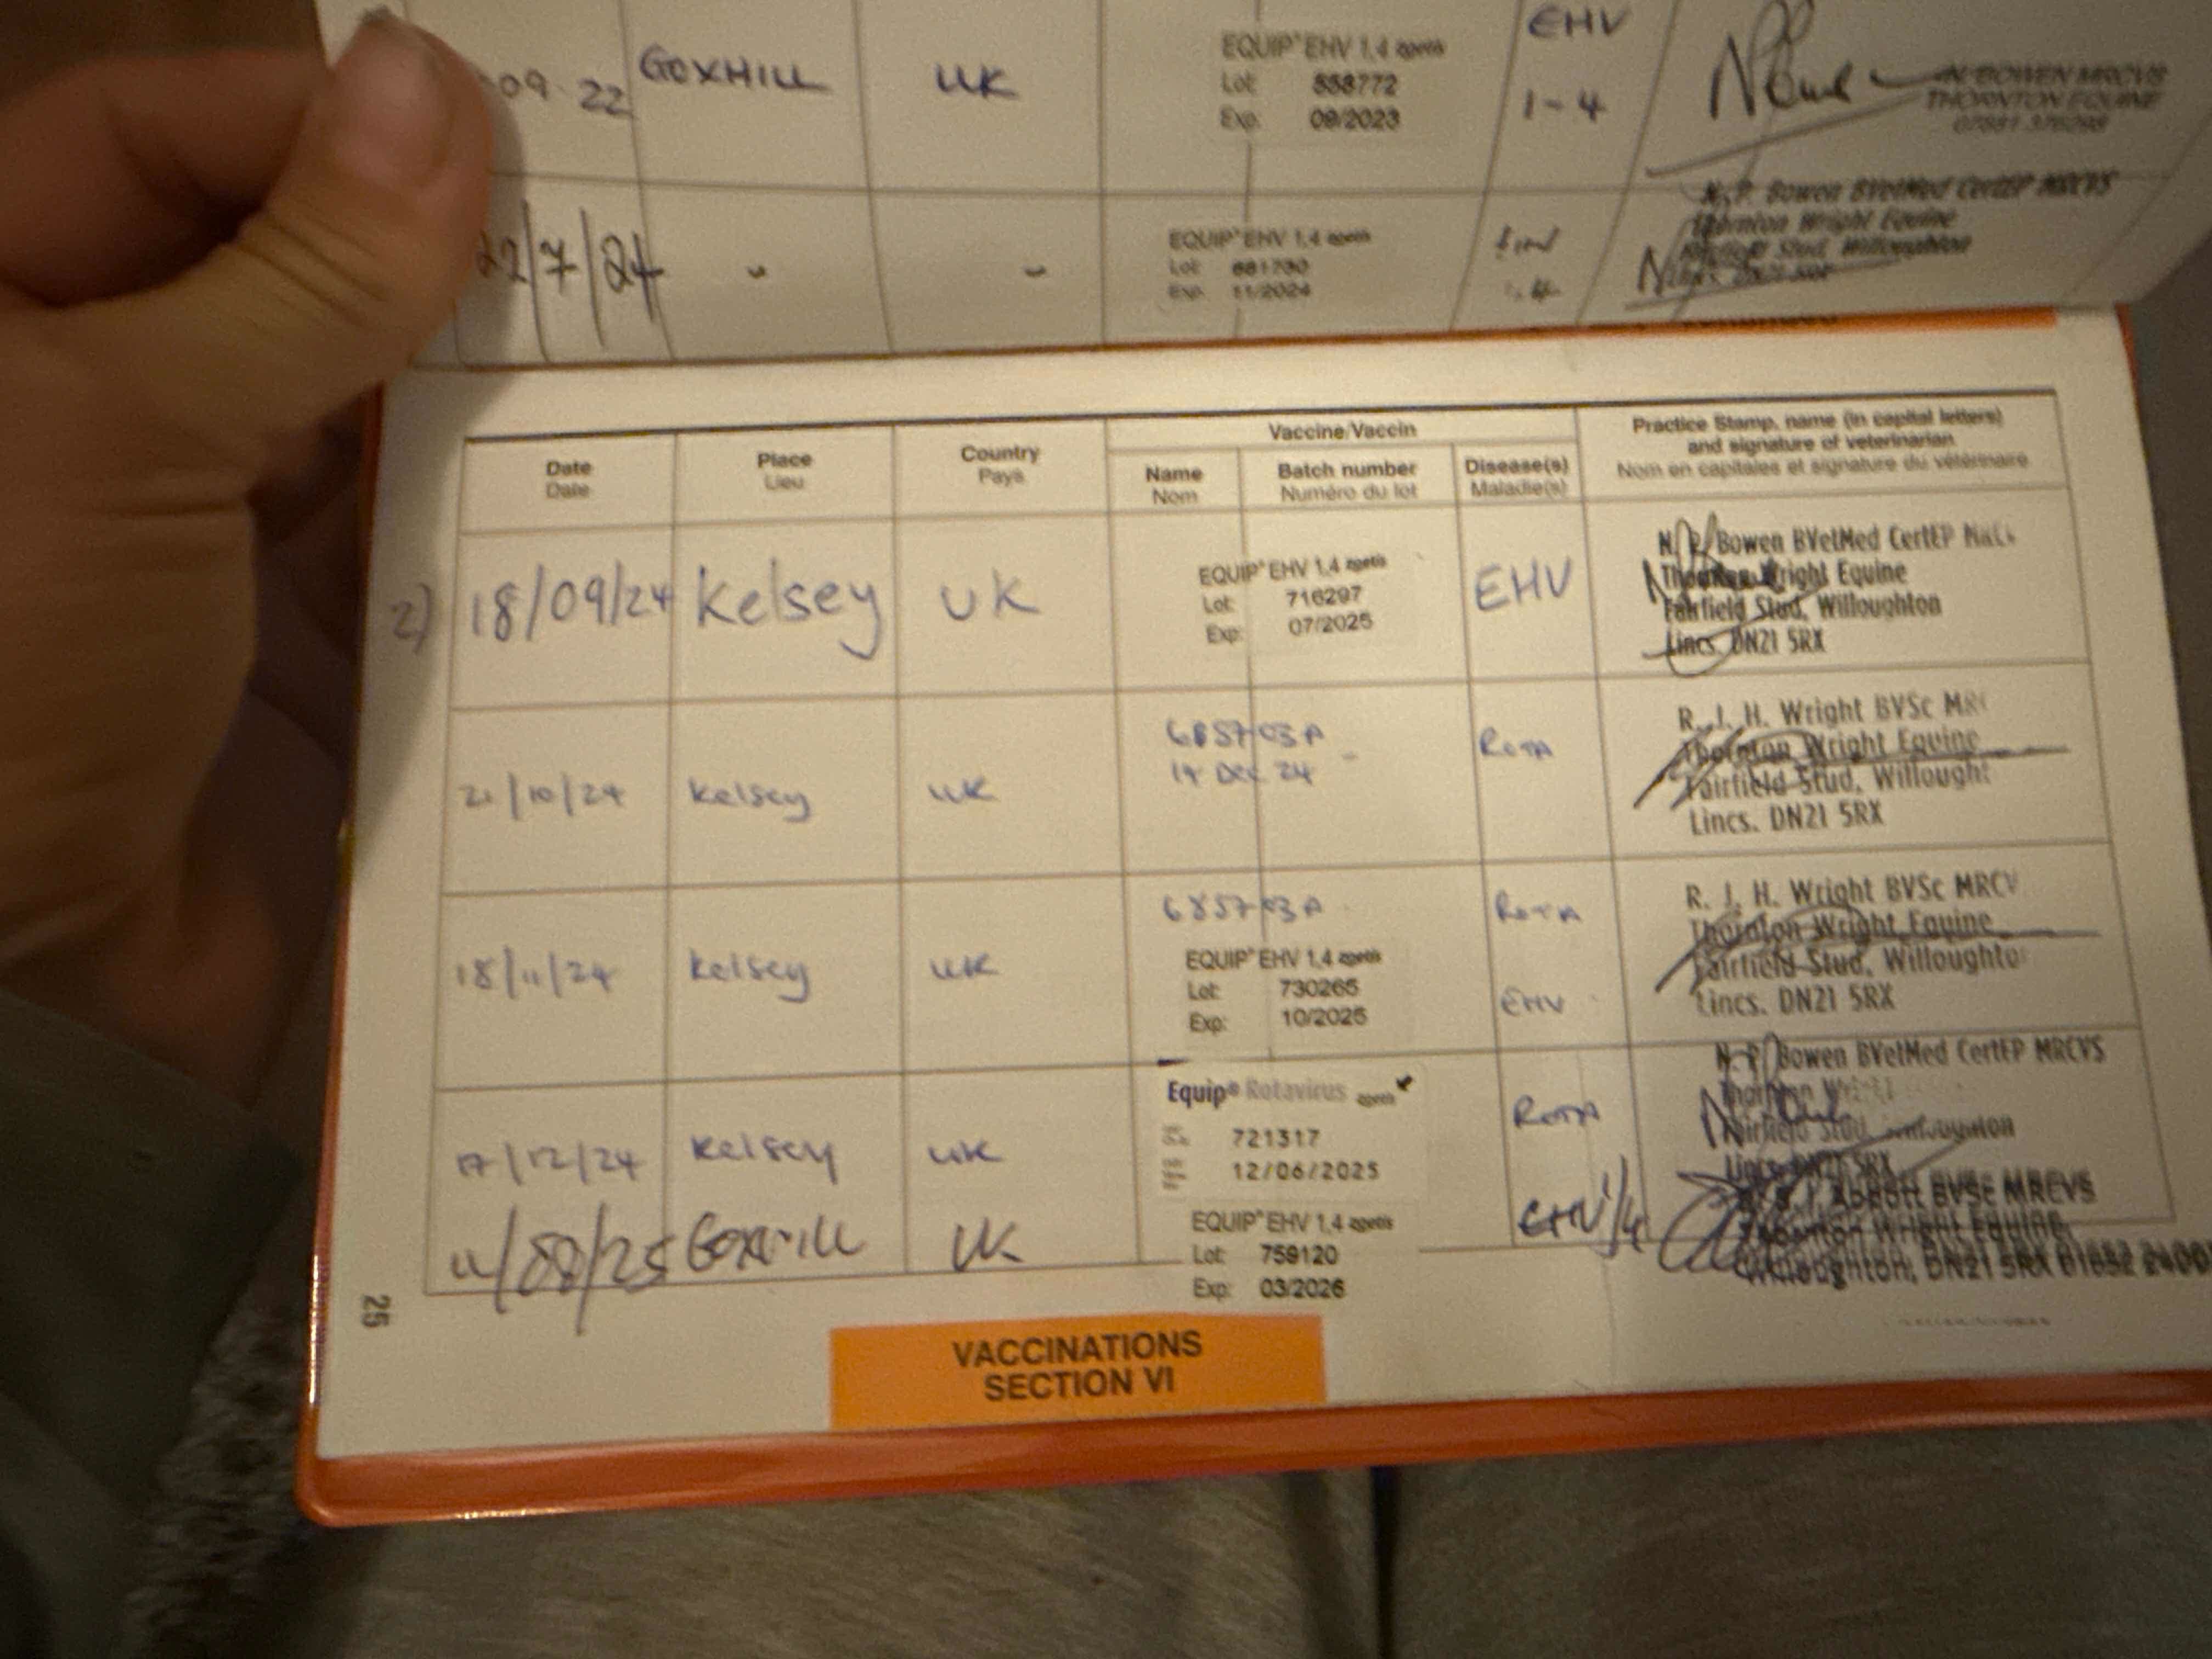 09.22 GOXHILL UK EQUIP® EHV 1,4 zoetis EHV
Lot: 558772 1-4
Exp: 09/2023
N. BOWEN MRCVS
THORNTON EQUINE
22/7/24 - - EQUIP® EHV 1,4 zoetis
Lot: 681730 1,4
Exp: 11/2024
N. P. Bowen BVetMed CertEP MRCVS
Thornton Wright Equine
Fairfield Stud, Willoughton
Lincs. DN21 5RX
Date
Date
Place
Lieu
Country
Pays
Vaccine/Vaccin
Name
Nom
Batch number
Numéro du lot
Disease(s)
Maladie(s)
Practice Stamp, name (in capital letters)
and signature of veterinarian
Nom en capitales et signature du vétérinaire
2) 18/09/24 Kelsey UK
EQUIP® EHV 1,4 zoetis
Lot: 716297
Exp: 07/2025
EHV
N. P. Bowen BVetMed CertEP
Thornton Wright Equine
Fairfield Stud, Willoughton
Lincs. DN21 5RX
21/10/24 Kelsey UK
685703A
14 Dec 24
Rota
R. J. H. Wright BVSc
Thornton Wright Equine
Fairfield Stud, Willought
Lincs. DN21 5RX
18/11/24 Kelsey UK
685703A
Rota
EQUIP® EHV 1,4 zoetis
Lot: 730265
Exp: 10/2025
EHV
R. J. H. Wright BVSc MRCV
Thornton Wright Equine
Fairfield Stud, Willoughto
Lincs. DN21 5RX
17/12/24 Kelsey UK
Equip® Rotavirus zoetis
721317
12/06/2025
Rota
N. P. Bowen BVetMed CertEP MRCVS
Thornton
Fairfield Stud, Willoughton
Lincs. DN21 5RX
11/08/25 Goxhill UK
EQUIP® EHV 1,4 zoetis
Lot: 759120
Exp: 03/2026
EHV 1/4
Abbott BVSc MRCVS
Thornton Wright Equine,
Willoughton, DN21 5RX 01652
25
VACCINATIONS
SECTION VI